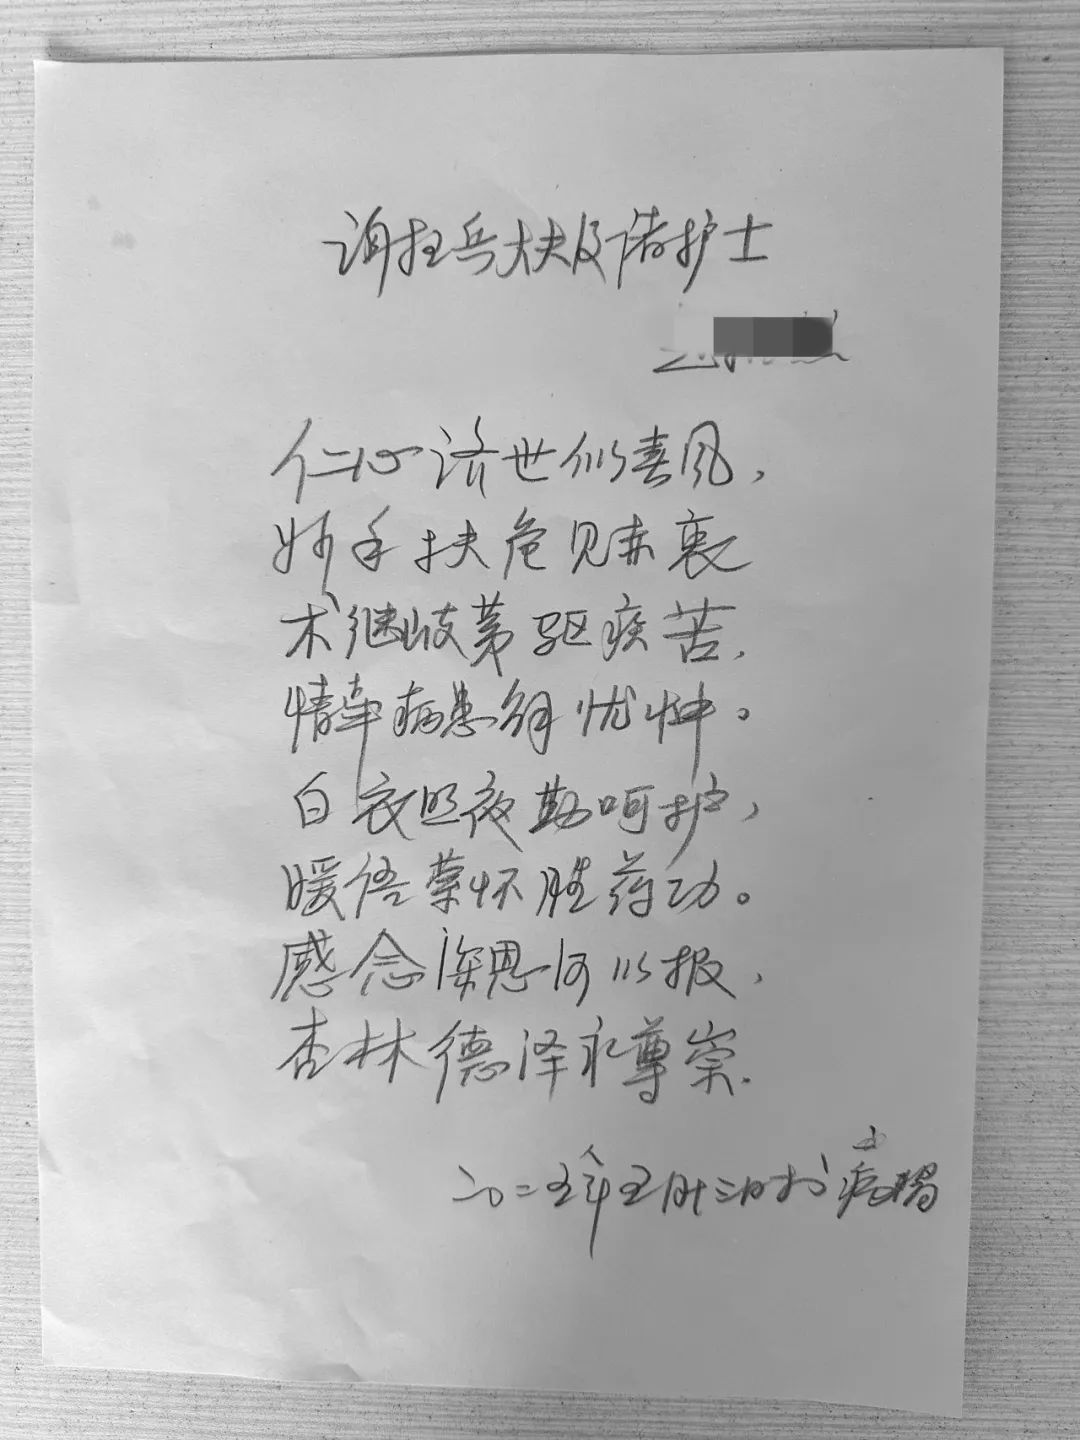 谢 兵大夫及诸护士
仁心济世似春风,
妙手扶危见赤衷
术继岐黄驱疾苦,
情牵病患解忧忡。
白衣照夜勤呵护,
暖语萦怀胜药功。
感念深恩何以报,
杏林德泽永尊崇.
二〇二五年五月 三日于病榻